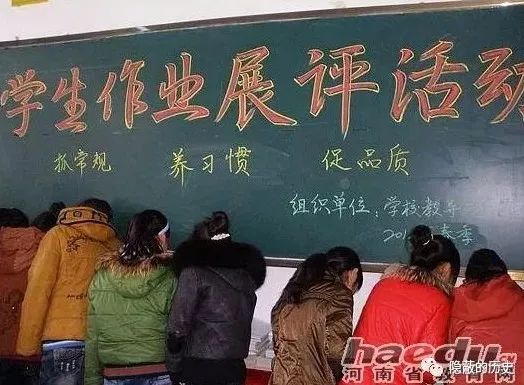 学生作业展评活动
抓常规 养习惯 促品质
组织单位：学校教导
春季
haedu
河南省教育网
隐蔽的历史